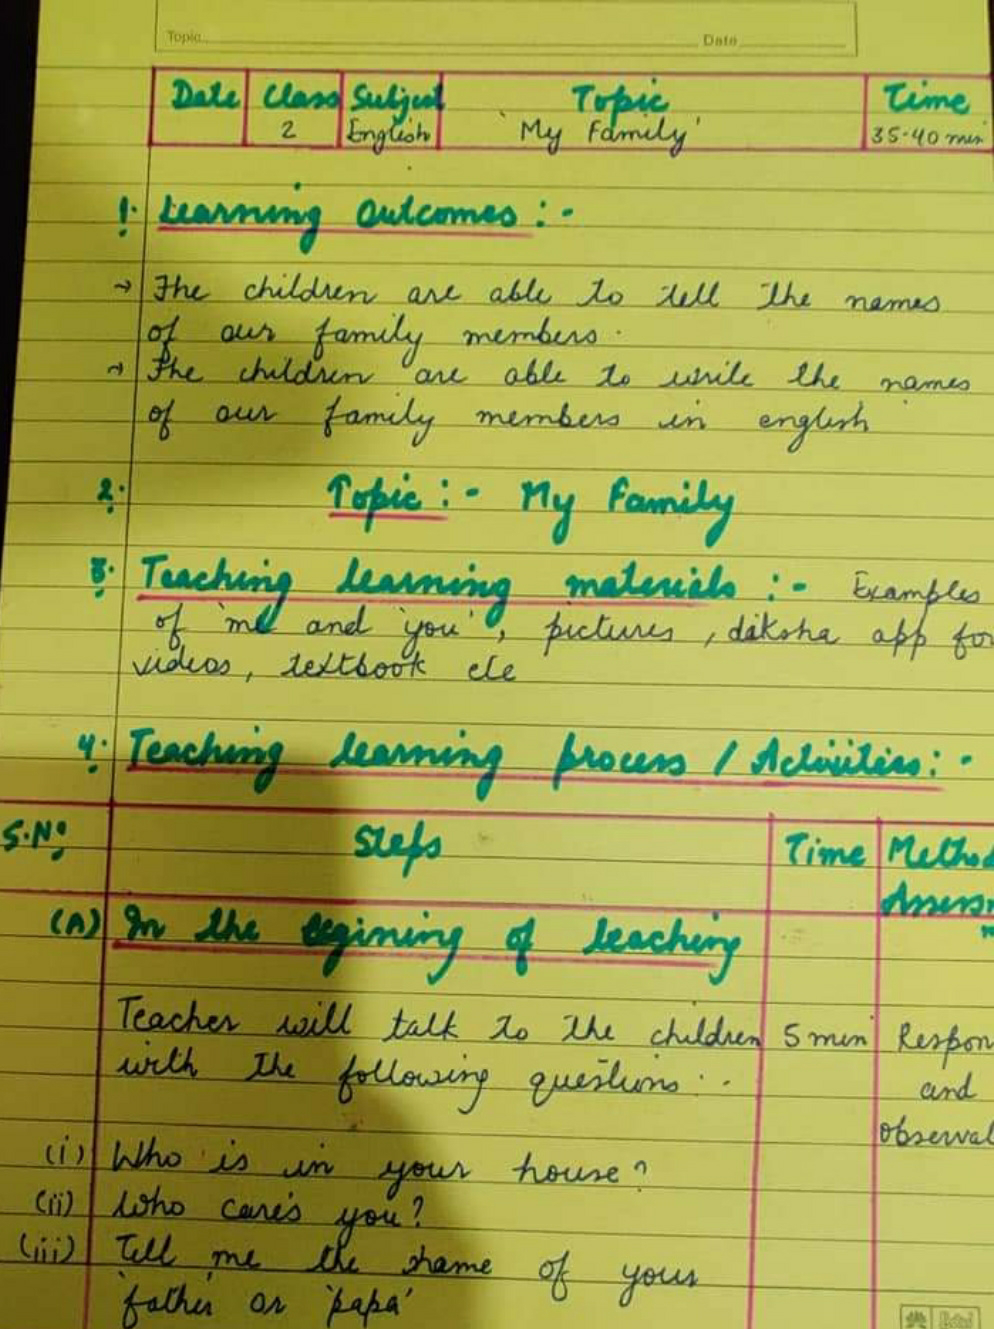 Topic Date
Date Class Subject Topic Time
2 English 'My Family' 35-40 min
1. Learning Outcomes :-
→ The children are able to tell the names
of our family members.
→ The children are able to write the names
of our family members in english
2. Topic :- My Family
3. Teaching learning materials :- Examples
of 'me and you', pictures, diksha app for
videos, textbook etc
4. Teaching learning process / Activities :-
S.No Steps Time Method
Assess
(A) In the begining of teaching
Teacher will talk to the children 5 min Respon
with the following questions :- and
observat
(i) Who is in your house?
(ii) Who cares you?
(iii) Tell me the name of your
'father' or 'papa'